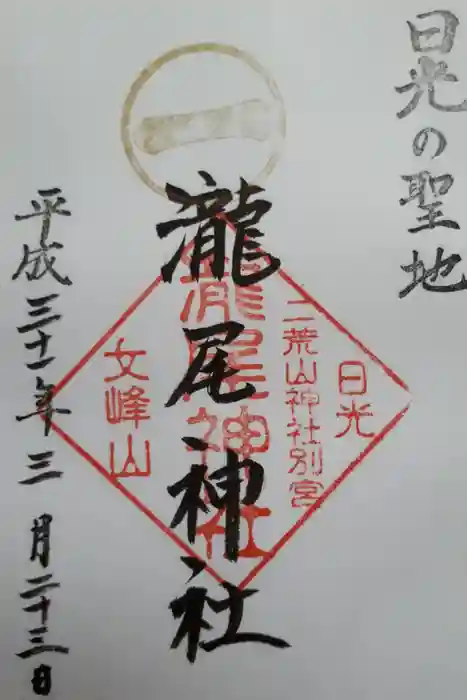 日光の聖地
一
瀧尾神社
日光
二荒山神社別宮
瀧尾神社
女峰山
平成三十一年三月二十三日